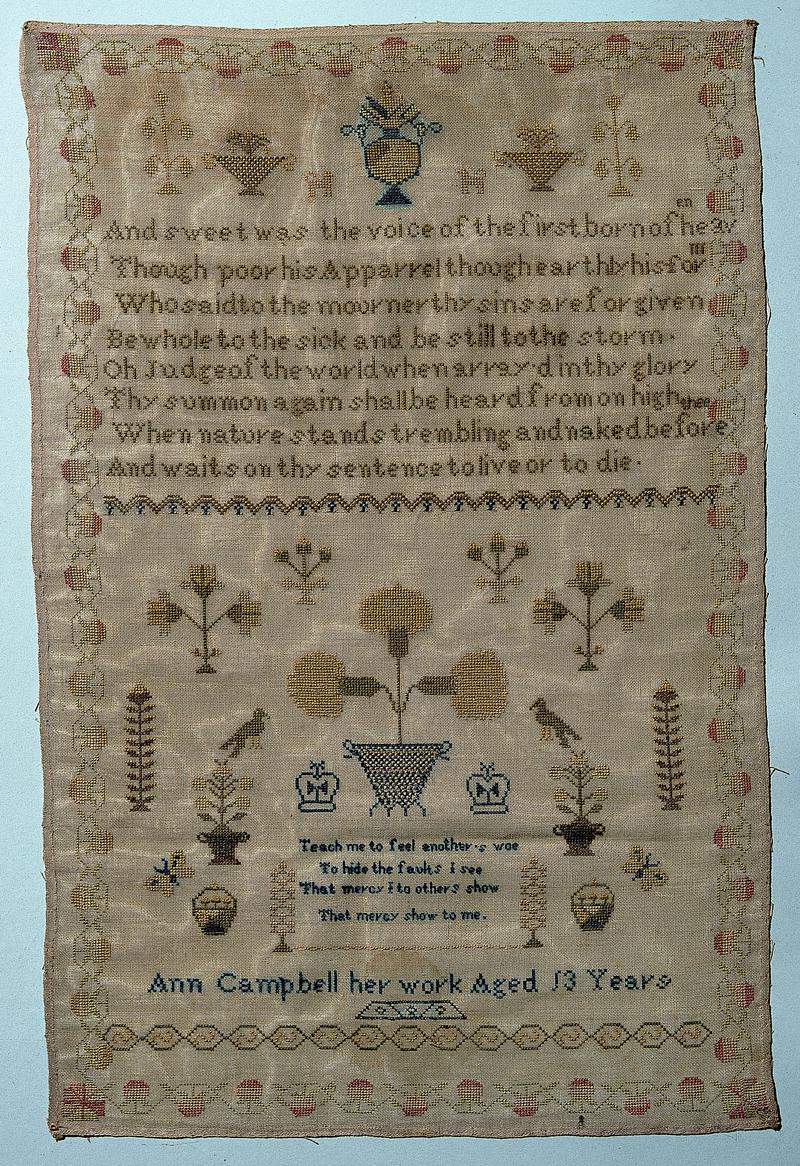 And sweet was the voice of the first born of heaven
Though poor his Apparrel though earthly his form
Who said to the mourner thy sins are forgiven
Be whole to the sick and be still to the storm.
Oh Judge of the world when array·d in thy glory
Thy summon again shall be heard from on high
When nature stands trembling and naked before thee
And waits on thy sentence to live or to die.
Teach me to feel another·s woe
To hide the faults I see
That mercy I to others show
That mercy show to me.
Ann Campbell her work Aged 13 Years